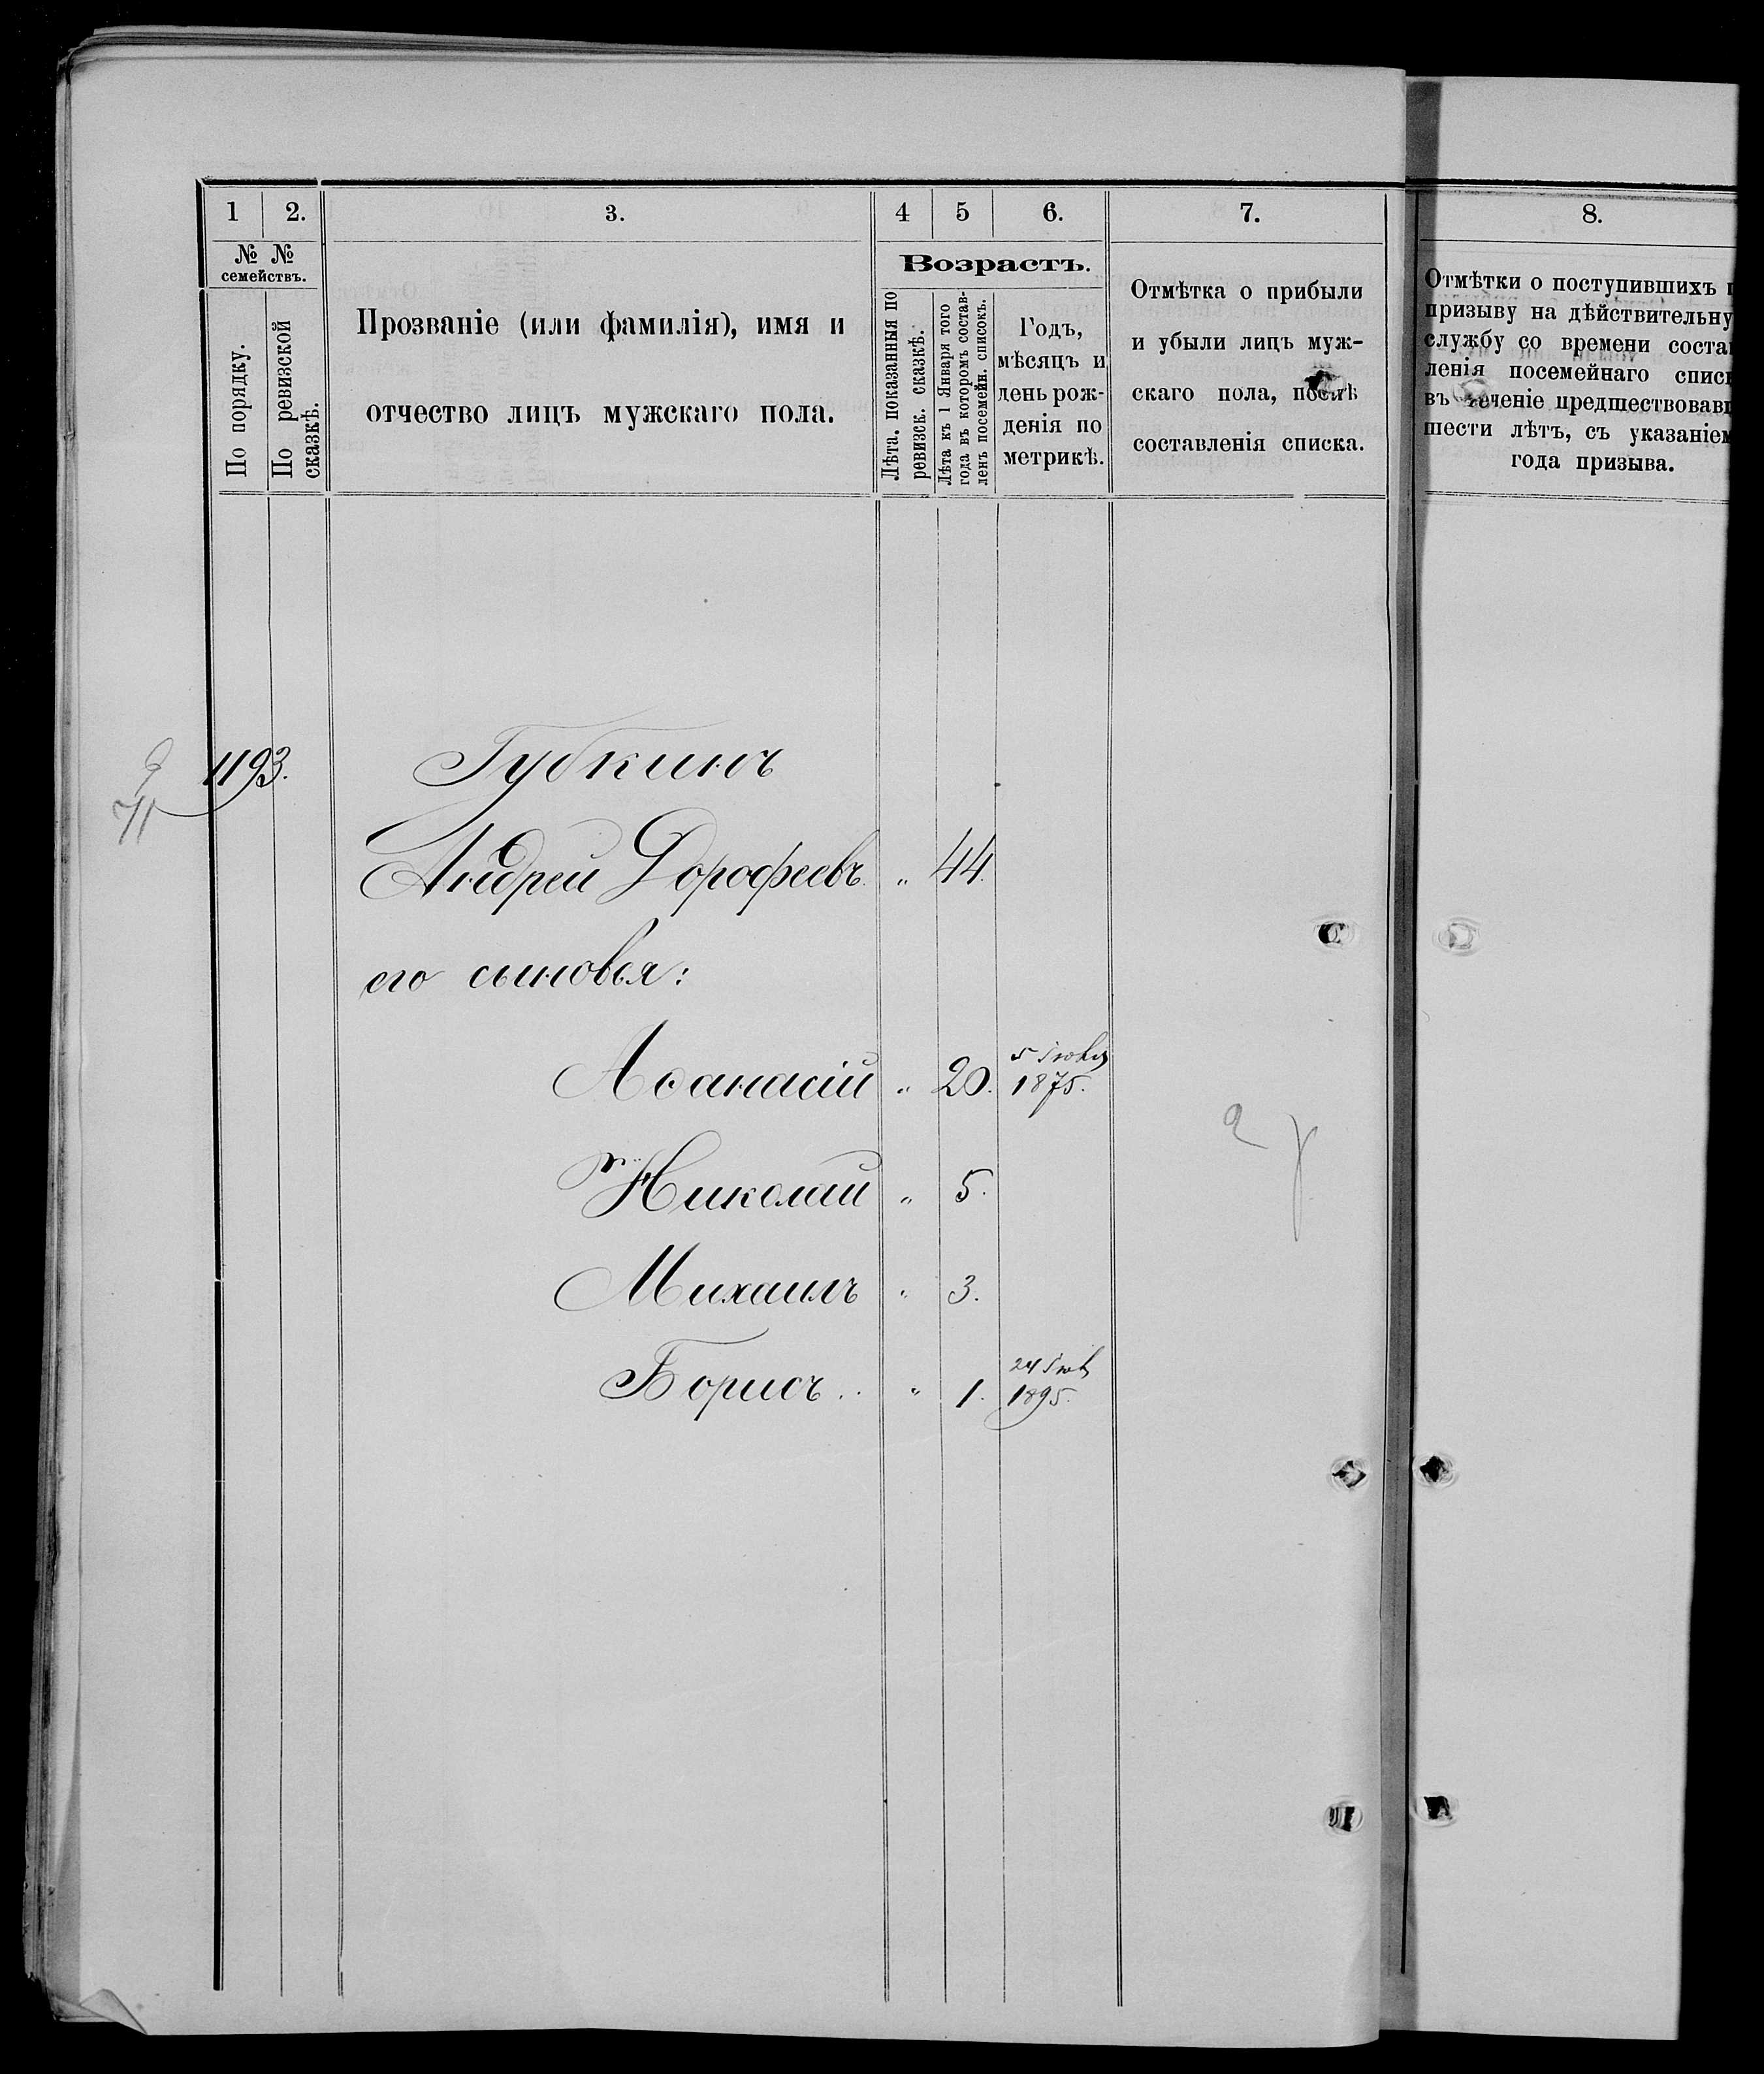 1 2. 3. 4 5 6. 7. 8.
№ № семействъ.
По порядку.
По ревизской сказкѣ.
Прозваніе (или фамилія), имя и
отчество лицъ мужскаго пола.
Возрастъ.
Лѣта, показанныя по
ревизск. сказкѣ.
Лѣта къ 1 Января того
года въ которомъ состав-
ленъ посемейн. списокъ.
Годъ,
мѣсяцъ и
день рож-
денія по
метрикѣ.
Отмѣтка о прибыли
и убыли лицъ муж-
скаго пола, послѣ
составленія списка.
Отмѣтки о поступившихъ п
призыву на дѣйствительну
службу со времени соста
ленія посемейнаго спис
въ теченіе предшествовавш
шести лѣтъ, съ указаніем
года призыва.
1193. Губкинъ
Андрей Дорофеевъ " 44.
его сыновья:
5 Іюля
Аѳанасій " 20. 1875.
Николай " 5.
Михаилъ " 3.
24
Борисъ " 1. 1895.